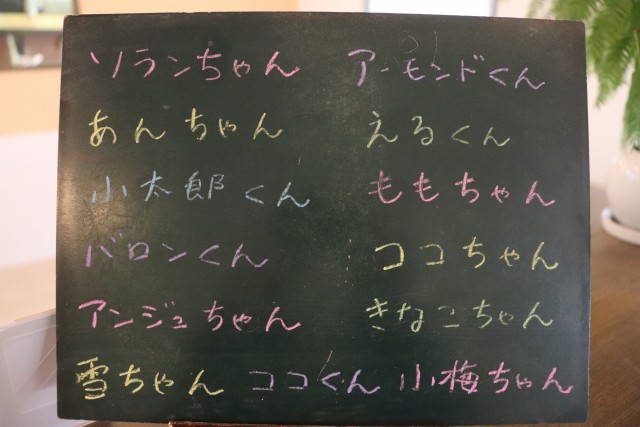 ソランちゃん アーモンドくん
あんちゃん えるくん
小太郎くん ももちゃん
バロンくん ココちゃん
アンジュちゃん きなこちゃん
雪ちゃん ココくん 小梅ちゃん